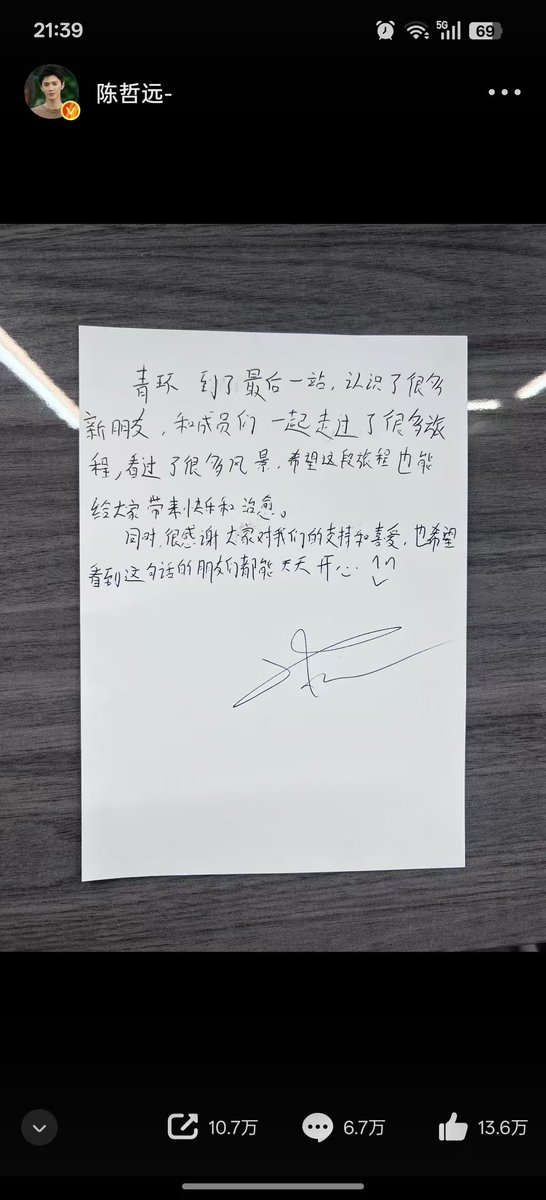 21:39
5G
69
陈哲远-
青环 到了最后一站，认识了很多
新朋友，和成员们一起走过了很多旅
程，看过了很多风景，希望这段旅程也能
给大家带来快乐和治愈。
同时，很感谢大家对我们的支持和喜爱，也希望
看到这句话的朋友们都能天天开心
10.7万
6.7万
13.6万